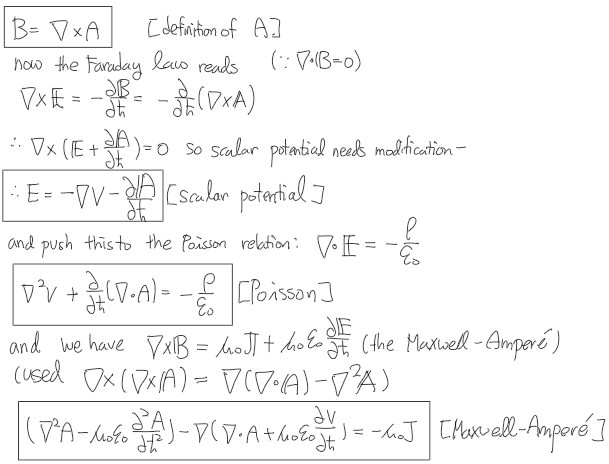 B = ∇×A [definition of A]
now the Faraday law reads (∵ ∇·B=0)
∇×E = -∂B/∂t = -∂/∂t(∇×A)
∴ ∇×(E+∂A/∂t)=0 so scalar potential needs modification-
∴ E = -∇V-∂A/∂t [scalar potential]
and push this to the Poisson relation: ∇·E = -ρ/ε₀
∇²V + ∂/∂t(∇·A) = -ρ/ε₀ [Poisson]
and we have ∇×B = μ₀J + μ₀ε₀ ∂E/∂t (the Maxwell-Amperé)
(used ∇×(∇×A) = ∇(∇·A)-∇²A)
(∇²A-μ₀ε₀ ∂²A/∂t²)-∇(∇·A+μ₀ε₀ ∂V/∂t) = -μ₀J [Maxwell-Amperé]